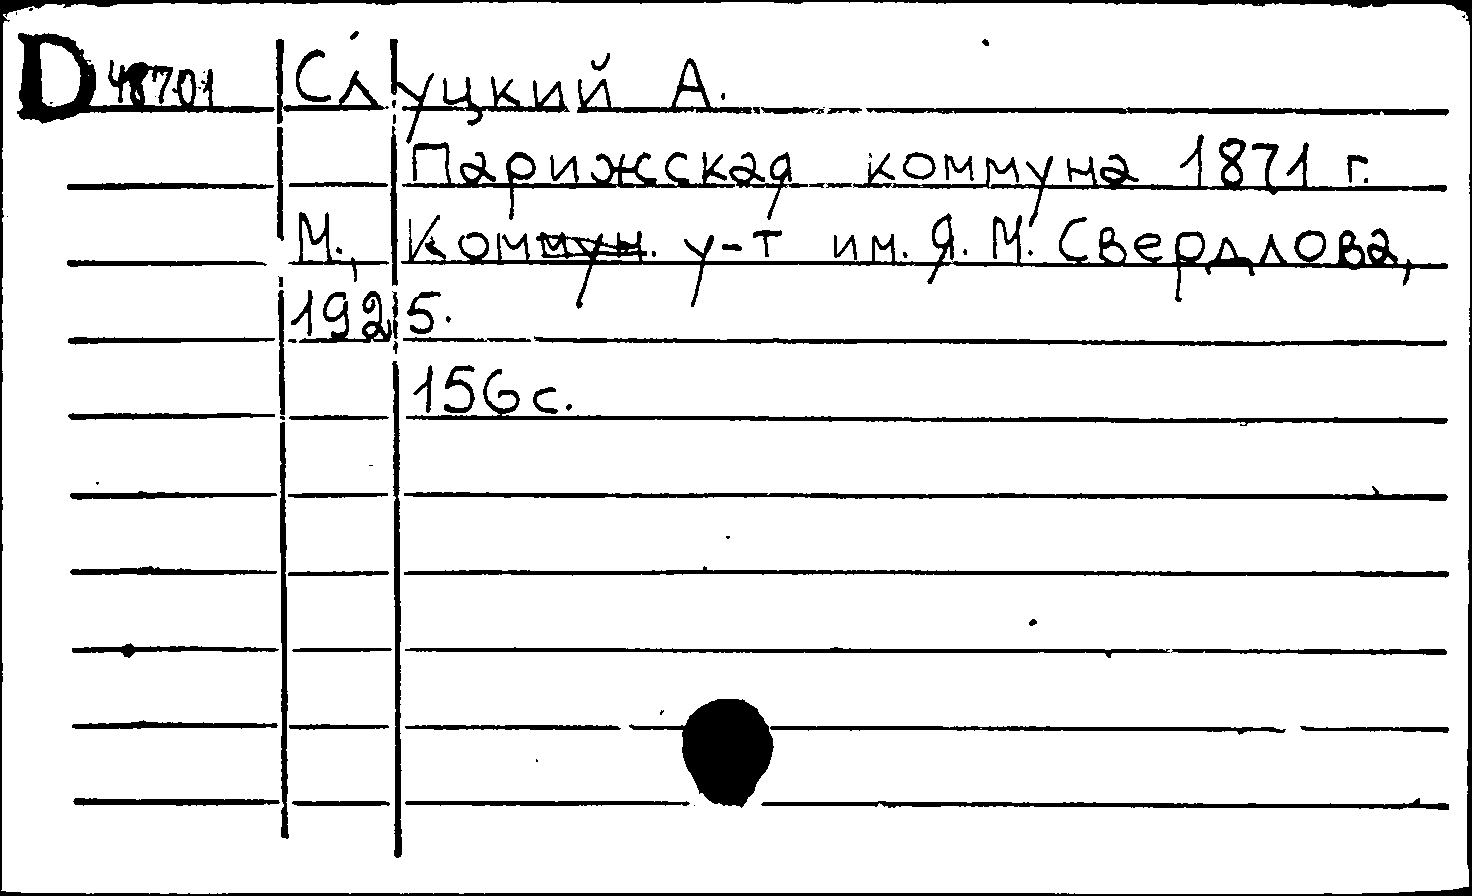 D 48701 Слуцкий А.
Парижская коммуна 1871 г.
М., Коммун. у-т им. Я. М. Свердлова,
1925.
156 с.